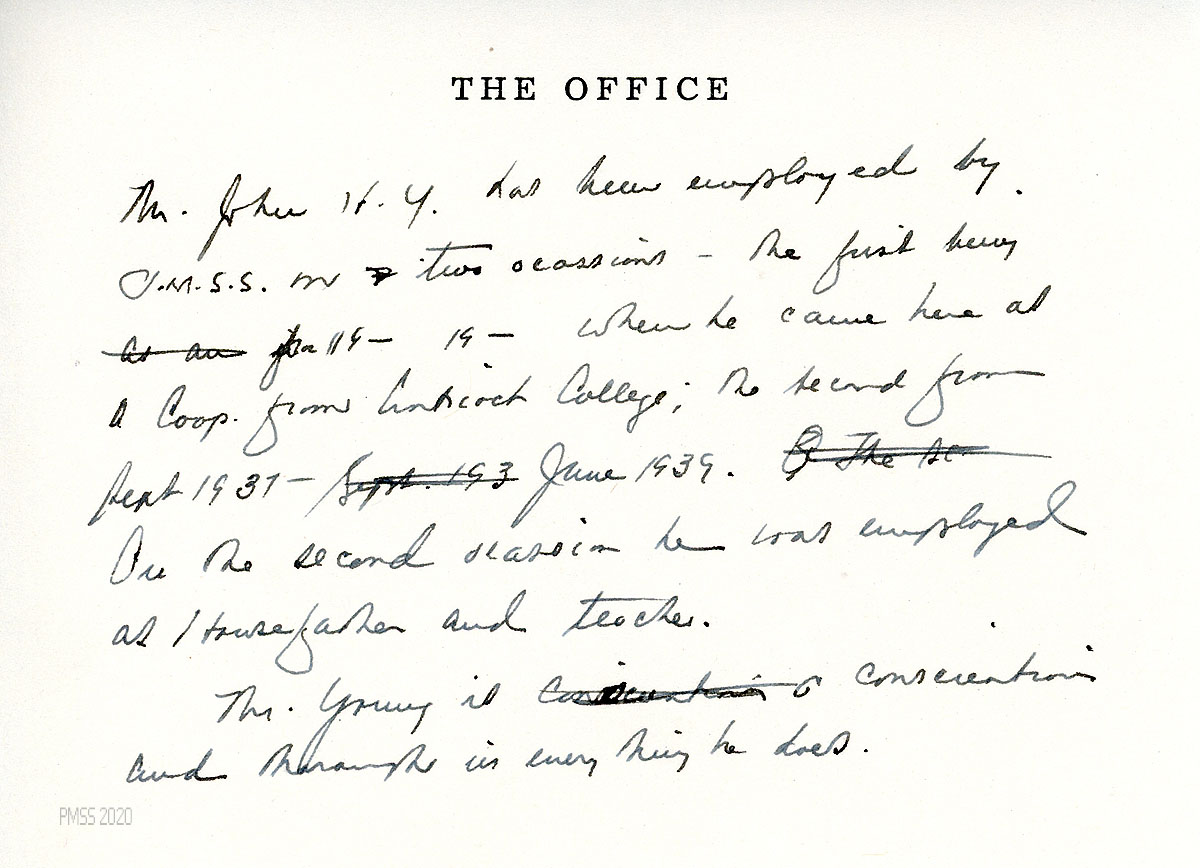 THE OFFICE
Mr. John H. Y. has been employed by
P.M.S.S. on two ocassions – the first being
as an 19— 19— when he came here as
a Coop. from Antioch College; the second from
Sept 1937 – Sept. 193 June 1939. The se
On the second ocassion he was employed
as Housefather and teacher.
Mr. Young is conscientious conscientious
and thorough in every thing he does.
PMSS 2020